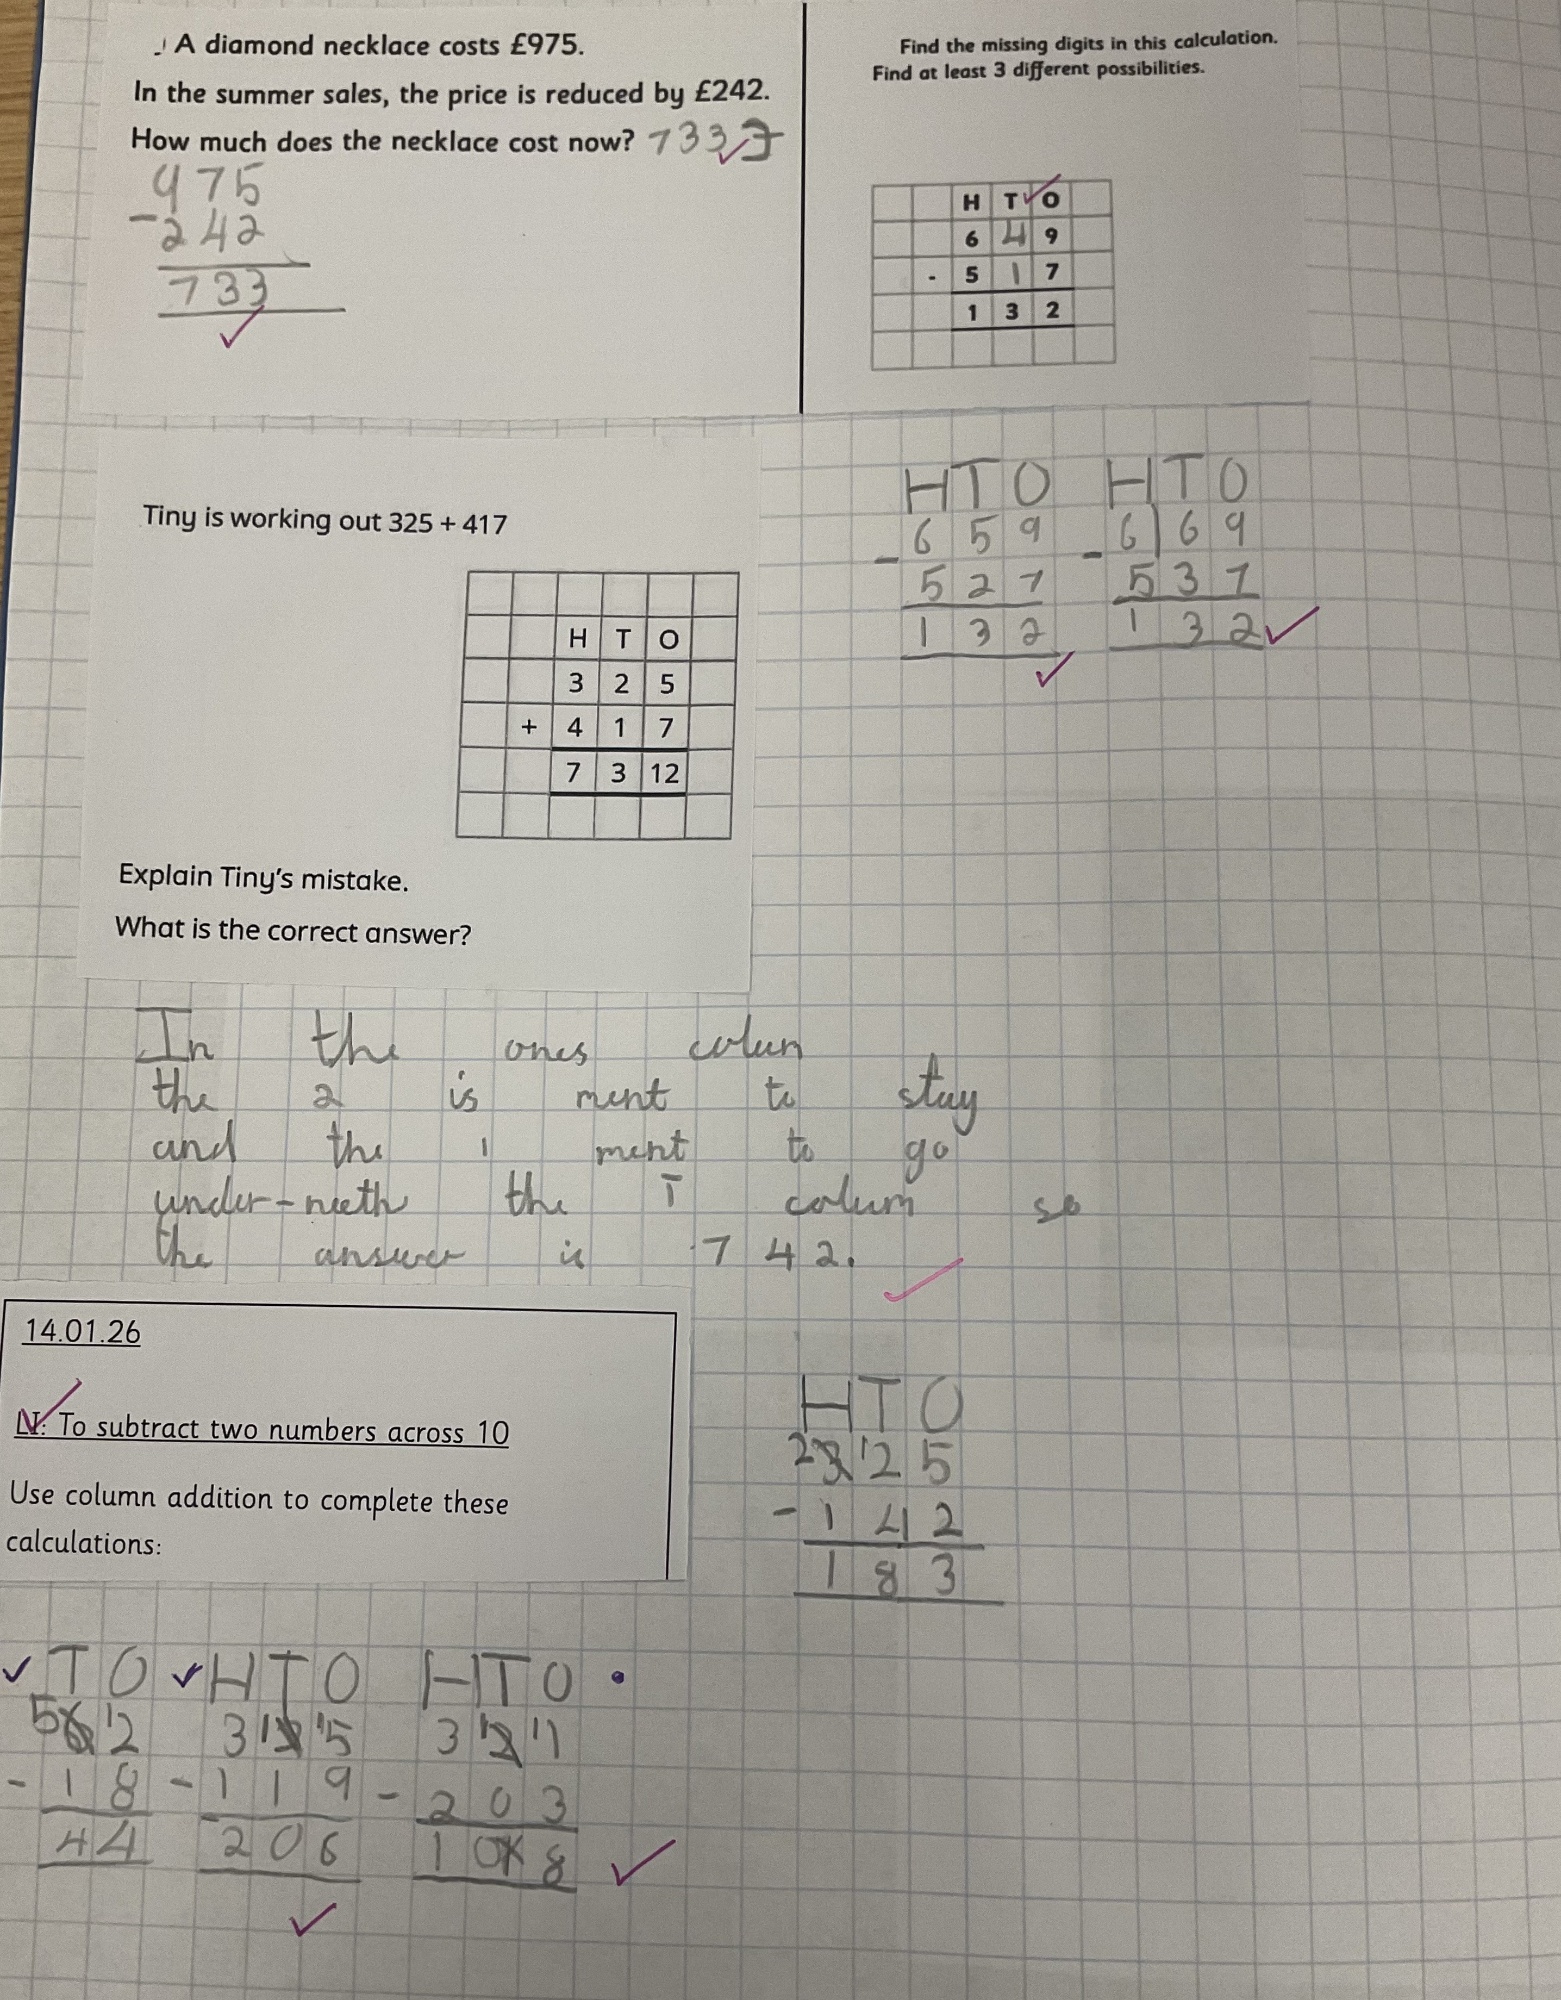 A diamond necklace costs £975.
In the summer sales, the price is reduced by £242.
How much does the necklace cost now? 733
975
- 242
733
Find the missing digits in this calculation.
Find at least 3 different possibilities.
H T O
6 4 9
- 5 1 7
1 3 2
H T O
6 5 9
- 5 2 7
1 3 2
H T O
6 6 9
- 5 3 7
1 3 2
Tiny is working out 325 + 417
H T O
3 2 5
+ 4 1 7
7 3 12
Explain Tiny's mistake.
What is the correct answer?
In the ones colun
the 2 is ment to stay
and the 1 ment to go
under-neeth the T colum so
the answer is 742.
14.01.26
LI: To subtract two numbers across 10
Use column addition to complete these
calculations:
H T O
2 3 1 2 5
- 1 4 2
1 8 3
T O
5 6 1 2
- 1 8
4 4
H T O
3 1 2 1 5
- 1 1 9
2 0 6
H T O
3 1 2 1 1
- 2 0 3
1 0 8